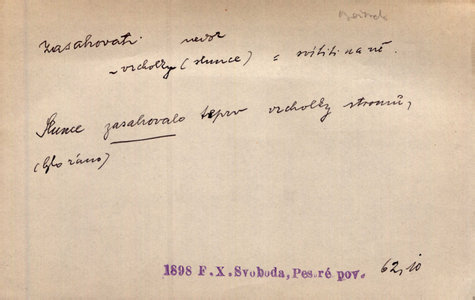 zasahovati nedok
~ vrcholky (slunce) = svítiti na ně.
Slunce zasahovalo teprv vrcholky stromů,
(bylo ráno)
1898 F. X. Svoboda, Pestré pov. 62,10